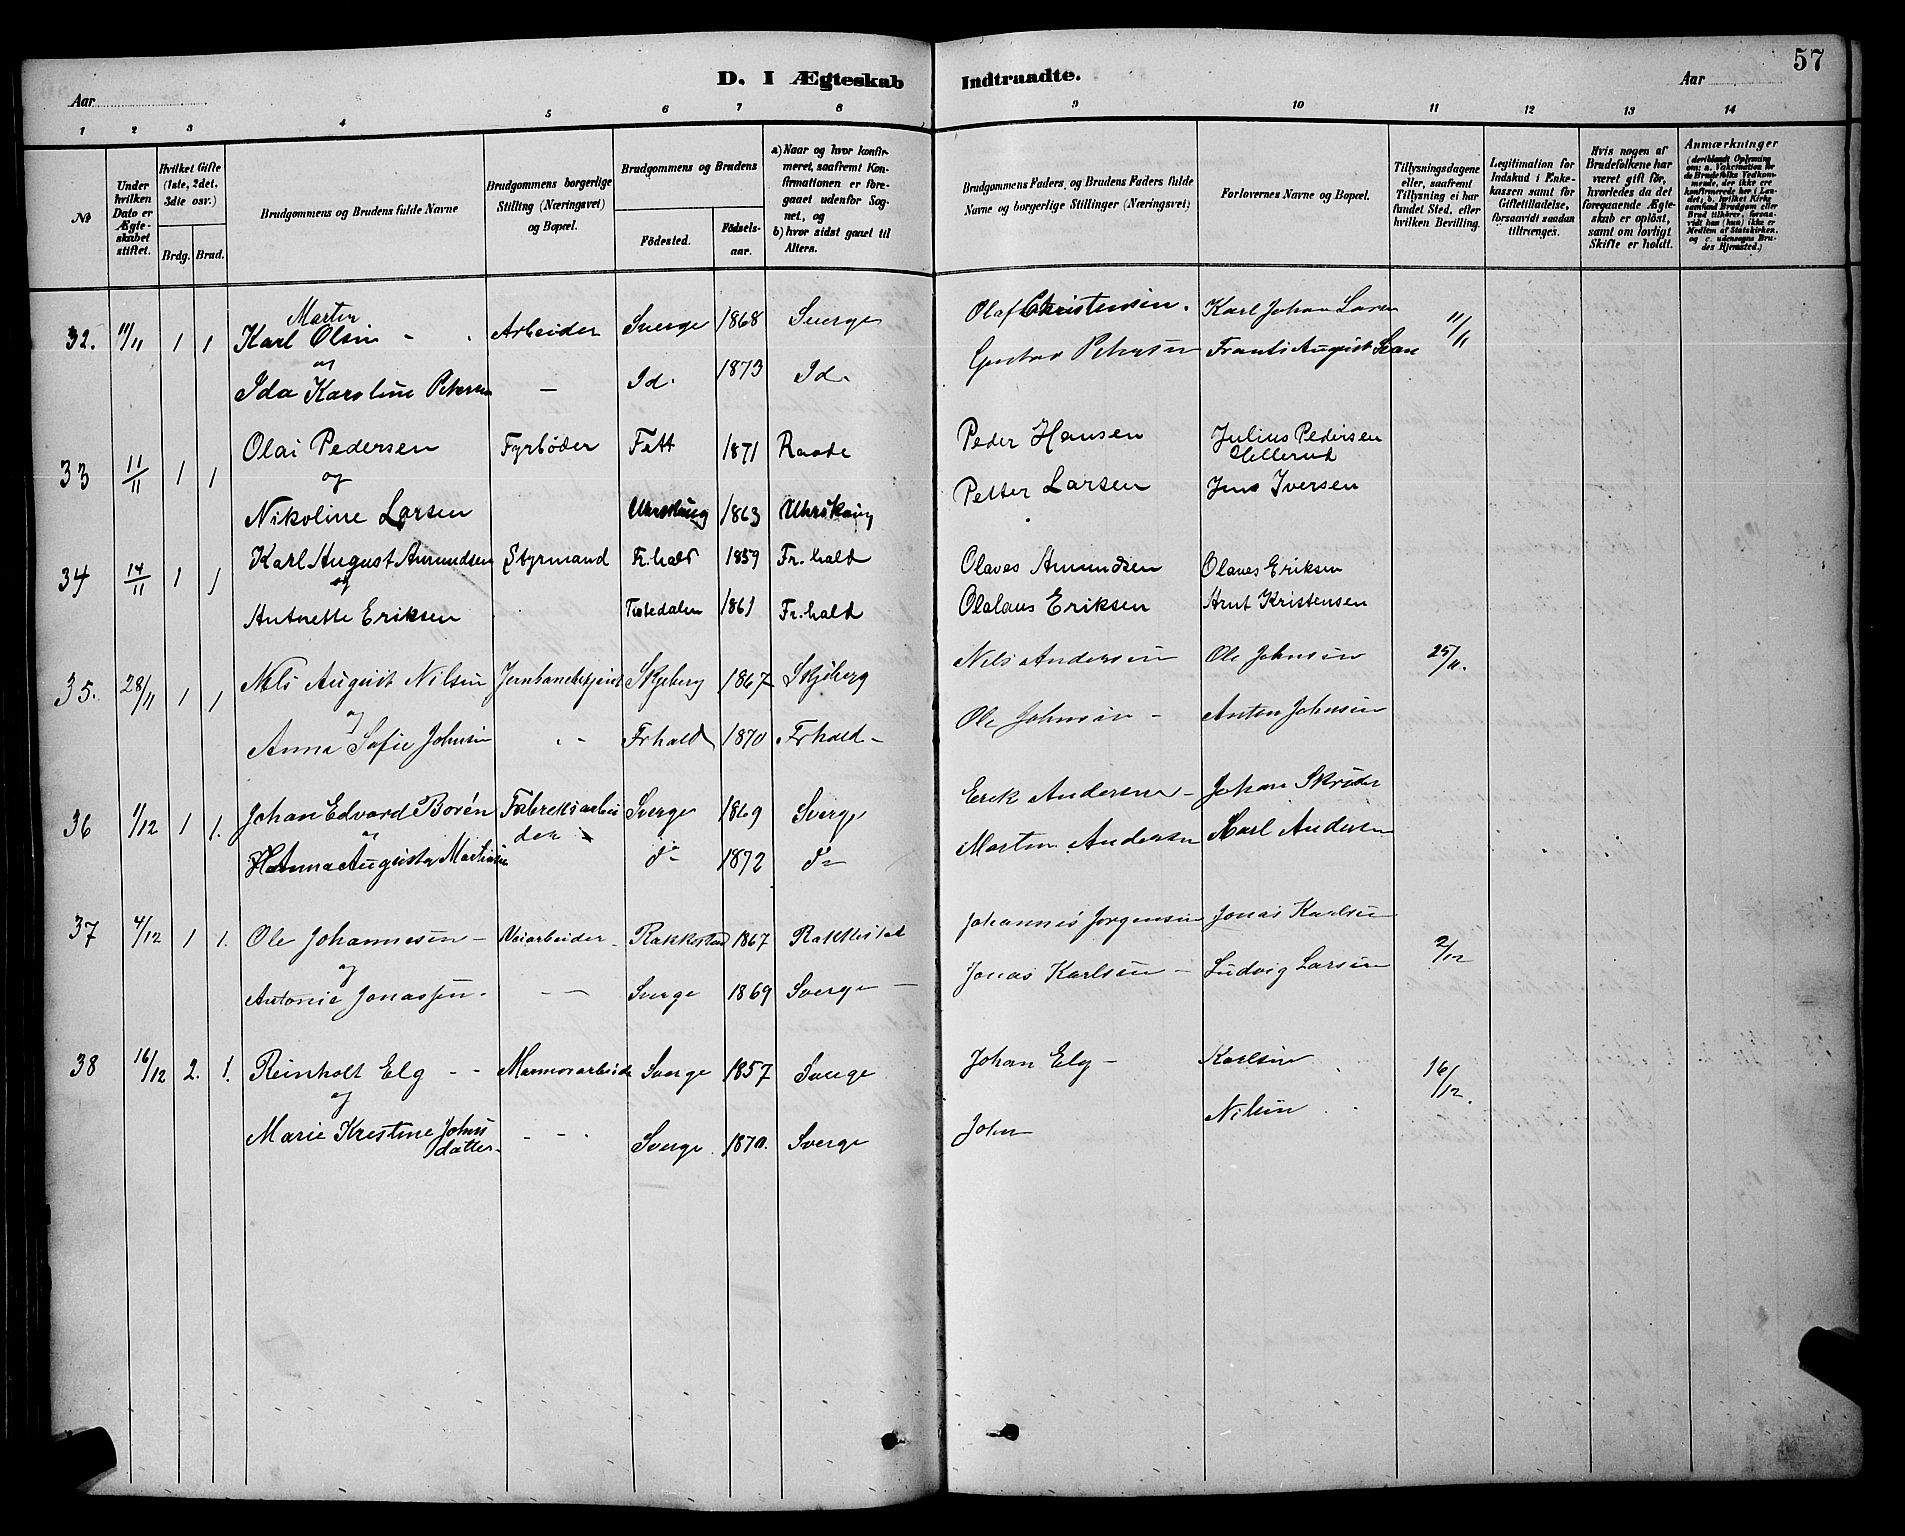 57
D. I Ægteskab Indtraadte.
Aar Aar
1 2 3 4 5 6 7 8 9 10 11 12 13 14
№
Under hvilken Dato er Ægteskabet stiftet.
Hvilket Gifte (1ste, 2det, 3die osv.)
Brdg. Brud.
Brudgommens og Brudens fulde Navne
Brudgommens borgerlige Stilling (Næringsvei) og Bopæl.
Brudgommens og Brudens
Fødested. Fødselsaar.
a) Naar og hvor konfirmeret, saafremt Konfirmationen er foregaaet udenfor Sognet, og
b) hvor sidst gaaet til Alters.
Brudgommens Faders, og Brudens Faders fulde Navne og borgerlige Stillinger (Næringsvei)
Forlovernes Navne og Bopæl.
Tillysningsdagene eller, saafremt Tillysning ei har fundet Sted, efter hvilken Bevilling.
Legitimation for Indskud i Enkekassen samt for Giftetilladelse, forsaavidt saadan tiltrænges.
Hvis nogen af Brudefolkene har været gift før, hvorledes da det foregaaende Ægteskab er opløst, samt om lovligt Skifte er holdt.
Anmærkninger (deriblandt Oplysning om: a. Vakcination for de Brudefolks Vedkommende, der ikke ere konfirmerede her i Landet, b. hvilket Kirkesamfund Brudgom eller Brud tilhører, forsaavidt han (hun) ikke er Medlem af Statskirken, og c. udensogns Brudes Hjemsted.)
32. 11/11 1 1 Karl Martin Olsen Arbeider Sverge 1868 Sverge Olaf Christensen. Karl Johan Larsen 11/11
og
Ida Karoline Petersen — Id. 1873 Id. Gustav Petersen Frants August
33 11/11 1 1 Olai Pedersen Fyrbøder Tett 1871 Raade Peder Hansen Julius Pedersen Hellerud
og
Nikoline Larsen 1863 Petter Larsen Jens Iversen
34 14/11 1 1 Karl August Amundsen Styrmand Fr.hald 1859 Fr.hald Olaves Amundsen Olaves Eriksen
og
Antonette Eriksen Tistedalen 1861 Fr.hald Olalaus Eriksen Arnt Kristensen
35. 28/11 1 1 Nils August Nilsen Jernbanebetjent Skjeberg 1867 Skjeberg Nils Andersen Ole Johnsen 25/11.
og
Anna Sofie Johnsen Frhald 1870 Frhald Ole Johnsen Anton Johnsen
36 1/12 1 1. Johan Edvard Borén Fabreksarbeider Sverge 1869 Sverge Erik Andersen Johan Skrøder
og
Hanna Augusta Martinsen do 1872 do Martin Andersen Karl Andersen
37 4/12 1 1. Ole Johannesen Veiarbeider Rakkestad 1867 Rakkestad Johannes Jørgensen Jonas Karlsen 2/12
og
Antonie Jonassen. Sverge 1869 Sverge Jonas Karlsen Ludvig Larsen
38 16/12 2. 1. Reinholt Elg Marmorarbeider Sverge 1857 Sverge Johan Elg Karlsen 16/12.
og
Marie Krestine Johnsdatter Sverge 1870. Sverge John Nilsen